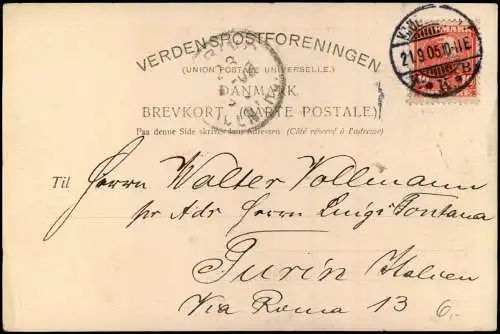 VERDENSPOSTFORENINGEN
(UNION POSTALE UNIVERSELLE.)
DANMARK
BREVKORT. (CARTE POSTALE)
Paa denne Side skrives kun Adressen (Côté réservé à l'adresse)
21.9.05 10-11E
Til Herrn Walter Vollmann
pr Adr Herrn Luigi Fontana
Turin Italien
Via Roma 13
6,-